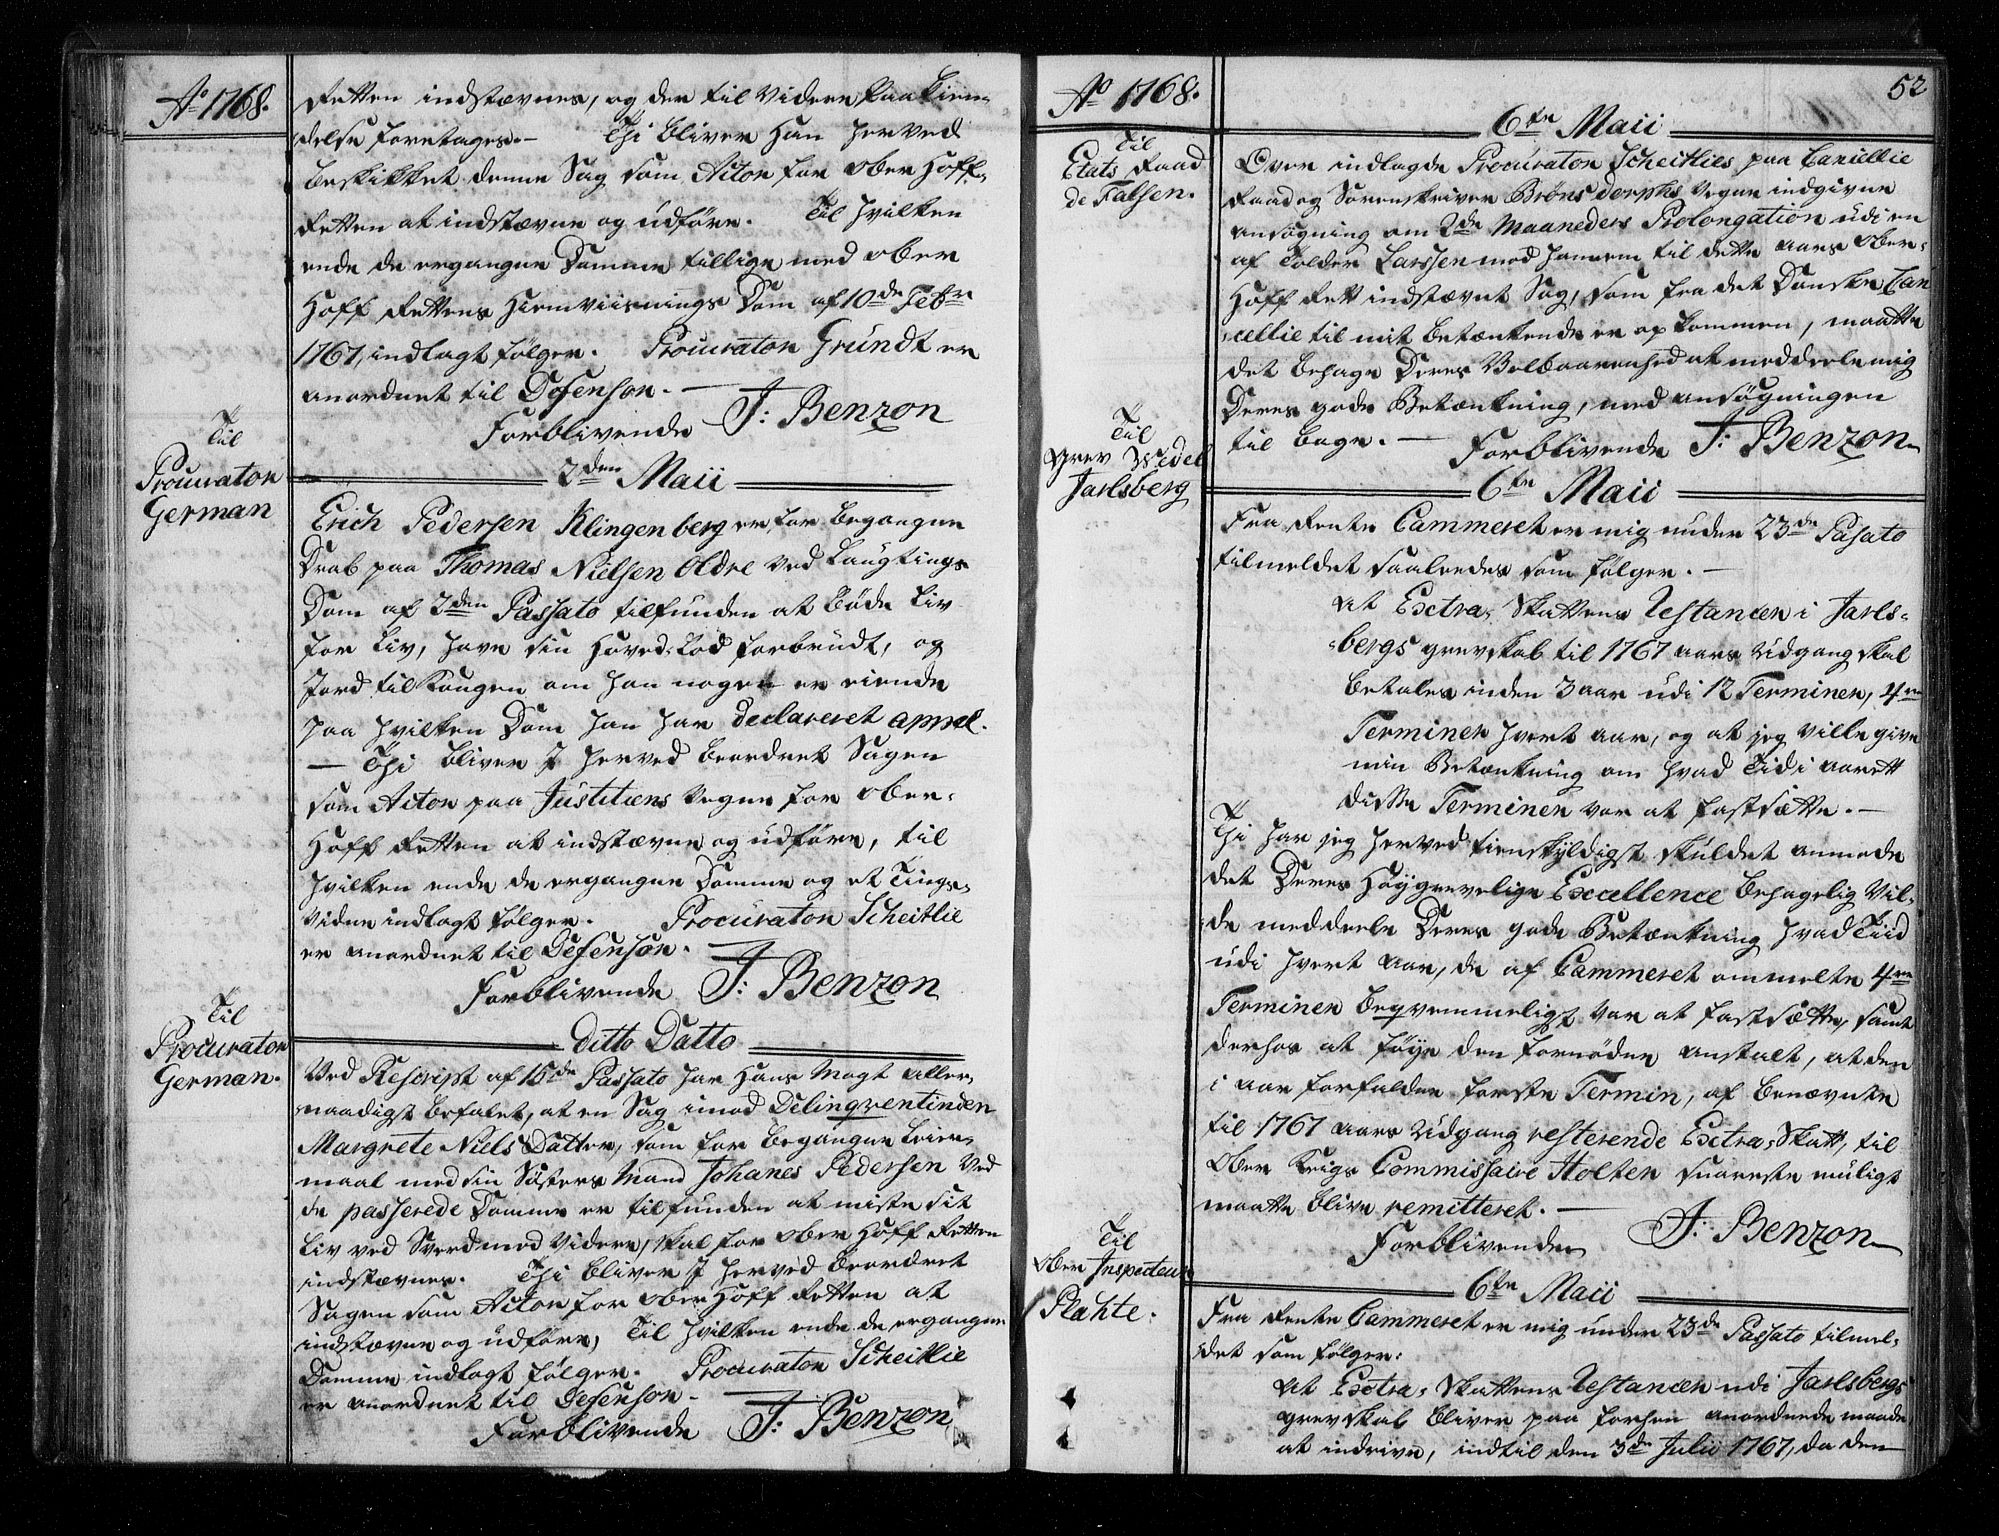 Ao 1768.
Retten indstævnes, og der til videre Paakien-
delse foretages. — Thi bliver Han herved
beskikket denne Sag som Actor for Ober Hoff-
Retten at indstævne og udføre. Til hvilken
ende de ergangne Domme tillige med Ober
Hoff Rettens Hiemviisnings Dom af 10de Febr
1767, indlagt følger. Procurator Grundt er
anordnet til Defensor. —
Forblivende J: Benzon
Til
Procurator
German
2den Maii
Erich Pedersen Klingenberg er for begangne
Drab paa Thomas Nielsen Oldre ved Laugtings
Dom af 2den Passato tilfunden at bøde Liv
for Liv, have sin Hoved-Lod forbrudt, og
Jord til Kongen om han nogen er eiende
paa hvilken Dom han har declareret appel.
— Thi bliver I herved beordret Sagen
som Actor paa Justitiens Vegne for Ober-
Hoff Retten at indstævne og udføre, til
hvilken ende de ergangne Domme og et Tings-
vidne indlagt følger. Procurator Scheitlie
er anordnet til Defensor.
Forblivende J: Benzon
Til
Procurator
German.
Ditto Datto
Ved Rescript af 15de Passato har Hans Mayt aller-
naadigst befalet, at en Sag imod Delinqventinden
Margrete Niels Datter, som for begangne Leier-
maal med sin Søsters Mand Johanes Pedersen ved
de passerede Domme er tilfunden at miste sit
Liv ved Sverd med videre, skal for Ober Hoff Retten
indstævnes. Thi bliver I herved beordret
Sagen som Actor for Ober Hoff Retten at
indstævne og udføre, Til hvilken ende de ergangne
Domme indlagt følger. Procurator Scheitlie
er anordnet til Defensor.
Forblivende J: Benzon
Ao 1768.
52
Til
Etats Raad
de Falsen.
6te Maii
Over indlagde Procurator Scheitlies paa Cancellie
Raad og Sorenskriver Brønsdorphs Vegne indgivne
ansøgning om 2de Maaneders Prolongation udi en
af Tolder Larssen mod hannem til dette aars Ober-
Hoff Rett indstævnt Sag, som fra det Danske Can
cellie til mit betænkende er op kommen, maatte
det behage Deres Velbaarenhed at meddeele mig
Deres gode Betænkning, med ansøgningen
til bage. — Forblivende J: Benzon
Til
Grev Wedel
Jarlsberg
6te Maii
Fra Rente Cammeret er mig under 23de Pasato
tilmeldet saaledes som følger. —
At Extra-Skattens Restancen i Jarls-
bergs grevskab til 1767 aars Udgang skal
betales inden 3 aar udi 12 Terminer, 4re
Terminer hvert aar, og at jeg ville give
min Betænkning om hvad Tid i aarett
disse Terminer var at fastsætte. —
Thi har jeg herved tienskyldigst skuldet anmode
det Deres Høygrevelige Excellence behagelig Vil-
de meddeele Deres gode Betænkning hvad Tiid
udi hvert aar, de af Cammeret ommelte 4re
Terminer beqvemmeligst var at fastsætte, samt
derhos at føye den fornødne anstalt, at den
i aar forfalden forste Termin, af benævnte
til 1767 aars Udgang resterende Extra-Skatt, til
Ober Krigs Commissaire Holten snareste muligt
maatte blive remitteret. —
Forblivende J: Benzon
Til
Ober Inspecteur
Plahte.
6te Maii
Fra Rente Cammeret er mig under 23de Passato tilmel-
det som følger:
At Extra-Skattens Restancen udi Jarlsbergs
grevskab bliver paa forhen anordnede maade
at indrive, indtil den 3de Julii 1767, da den